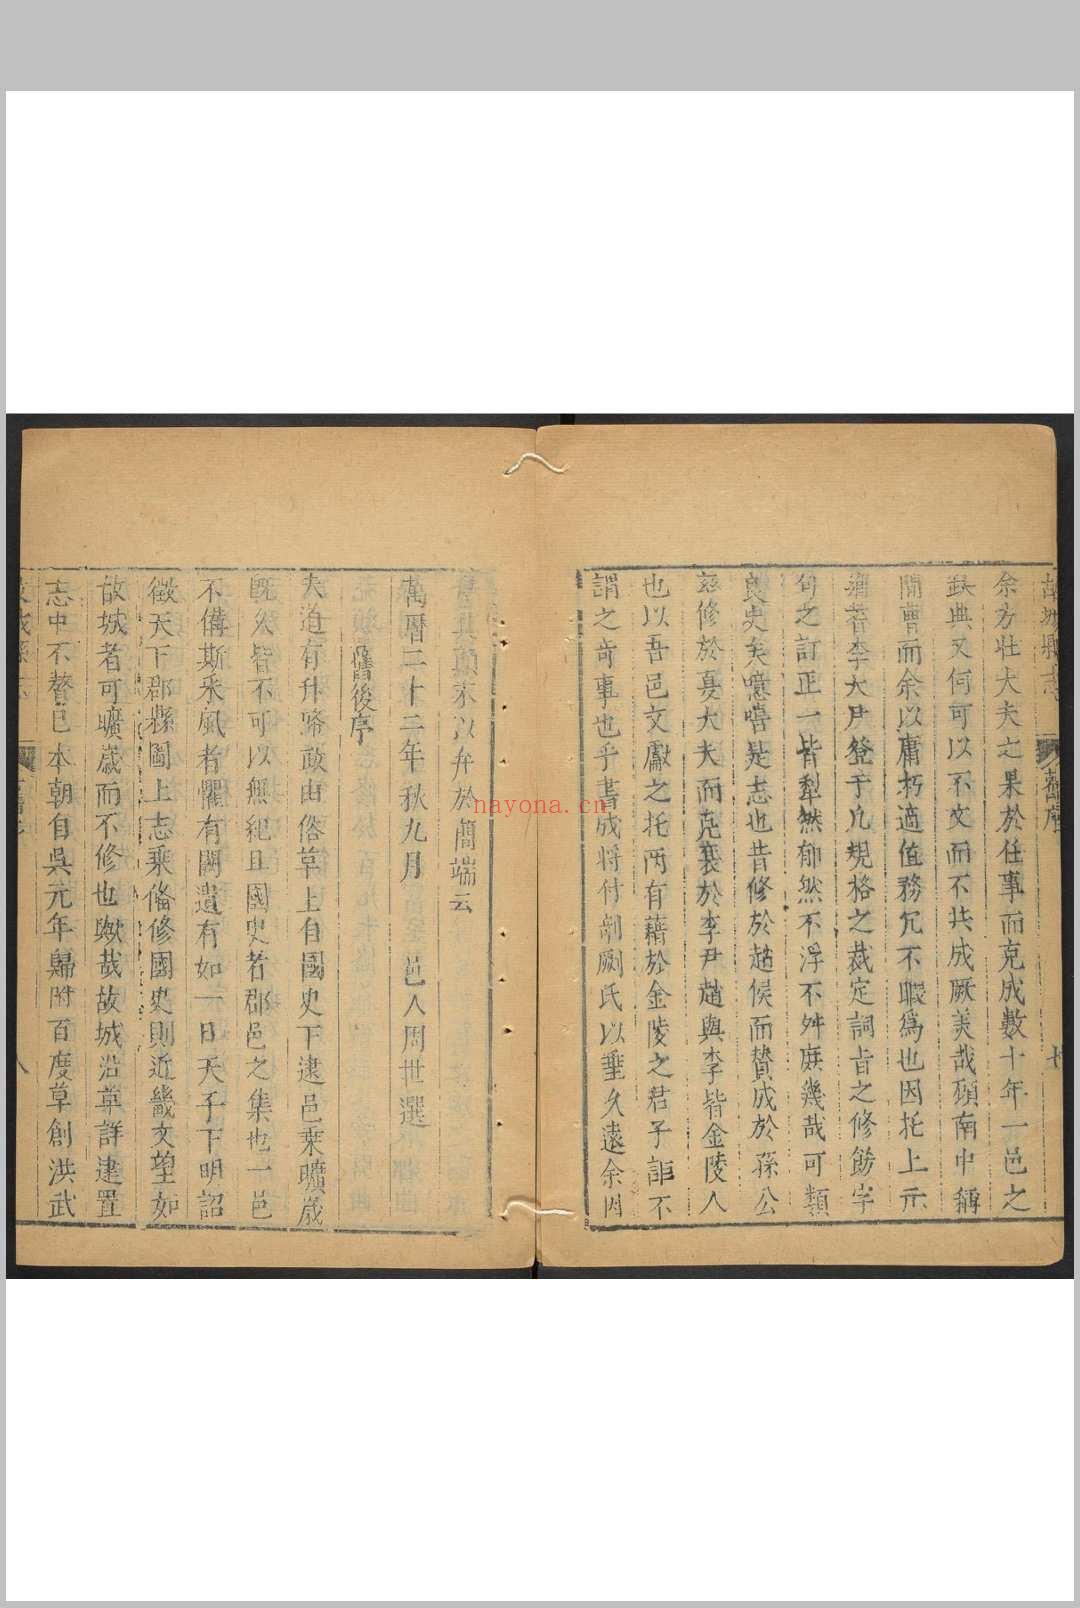 故城縣志 舊序 七
余方壯大夫之果於任事而克成數十年一邑之
缺典又何可以不文而不共成厥美哉顧南中稱
閒曹而余以庸朽適值務冗不暇爲也因托上元
李大尹登于凡規格之裁定詞旨之修飭字
句之訂正一皆犁然郁然不浮不舛庶幾哉可類
良史矣噫嘻是志也昔修於趙侯而贊成於孫公
茲修於夏大夫而克襄於李尹趙與李皆金陵人
也以吾邑文獻之托两有藉於金陵之君子詎不
謂之奇事也乎書成將付剞劂氏以垂久遠余因
書其顛末以弁於簡端云
萬曆二十二年秋九月 邑人周世選
舊後序
夫道有升降政由俗革上自國史下逮邑乘曠歲
既久皆不可以無紀且國史者郡邑之集也一邑
不備斯采風者懼有闕遺有如一日天子下明詔
徵天下郡縣圖上志乘俻修國史則近畿文望如
故城者可曠歲而不修也歟哉故城沿革詳建置
志中不贅已本朝自吳元年歸附百度草創洪武
八
nayona.cn